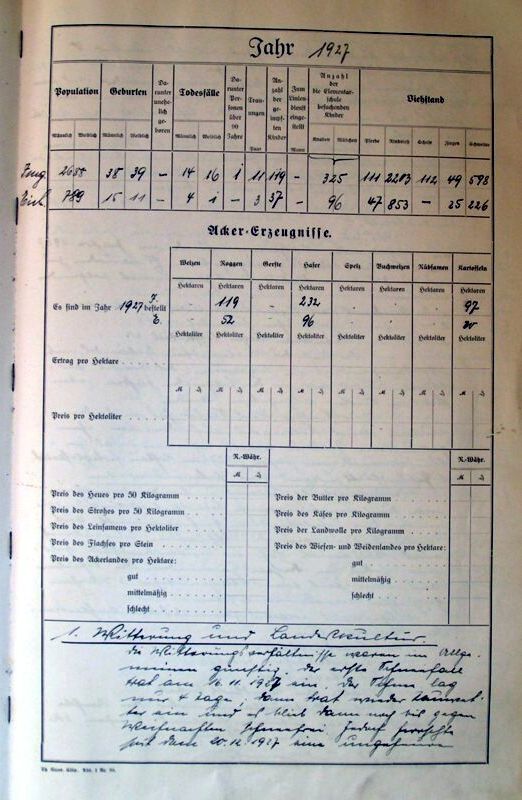 Jahr 1927
Population Geburten Da-runter unehe-lich ge-boren Todesfälle Da-runter Per-sonen über 90 Jahre Trau-ungen An-zahl der ge-impf-ten Kinder Zum Liniendienst eingestellt Anzahl der die Elementarschule besuchenden Kinder Viehstand
Männlich Weiblich Männlich Weiblich Männlich Weiblich Paar Mann Knaben Mädchen Pferde Rindvieh Schafe Ziegen Schweine
2655 38 39 – 14 16 1 11 119 – 325 111 2203 112 49 598
789 15 11 – 4 1 – 3 37 – 96 47 853 – 25 226
Acker-Erzeugnisse.
Weizen Roggen Gerste Hafer Spelz Buchweizen Rübsamen Kartoffeln
Hektaren Hektaren Hektaren Hektaren Hektaren Hektaren Hektaren Hektaren
Es sind im Jahr 1927 bestellt
119 232 97
52 96 20
Hektoliter Hektoliter Hektoliter Hektoliter Hektoliter Hektoliter Hektoliter Hektoliter
Ertrag pro Hektare
Preis pro Hektoliter
R.-Währ. R.-Währ.
Preis des Heues pro 50 Kilogramm
Preis des Strohes pro 50 Kilogramm
Preis des Leinsamens pro Hektoliter
Preis des Flachses pro Stein
Preis des Ackerlandes pro Hektare:
gut
mittelmäßig
schlecht
Preis der Butter pro Kilogramm
Preis des Käses pro Kilogramm
Preis der Landwolle pro Kilogramm
Preis des Wiesen- und Weidenlandes pro Hektare:
gut
mittelmäßig
schlecht
1. Witterung und Landeskultur.
Die Witterungsverhältnisse waren im Allge-
meinen günstig. Der erste Schneefall
trat am 10.11.1927 ein. Der Schnee lag
nur 4 Tage, dann trat wieder Tauwet-
ter ein und es blieb dann noch bis gegen
Weihnachten schneefrei. Jedoch herrschte
seit dem 20.12.1927 eine ungeheure